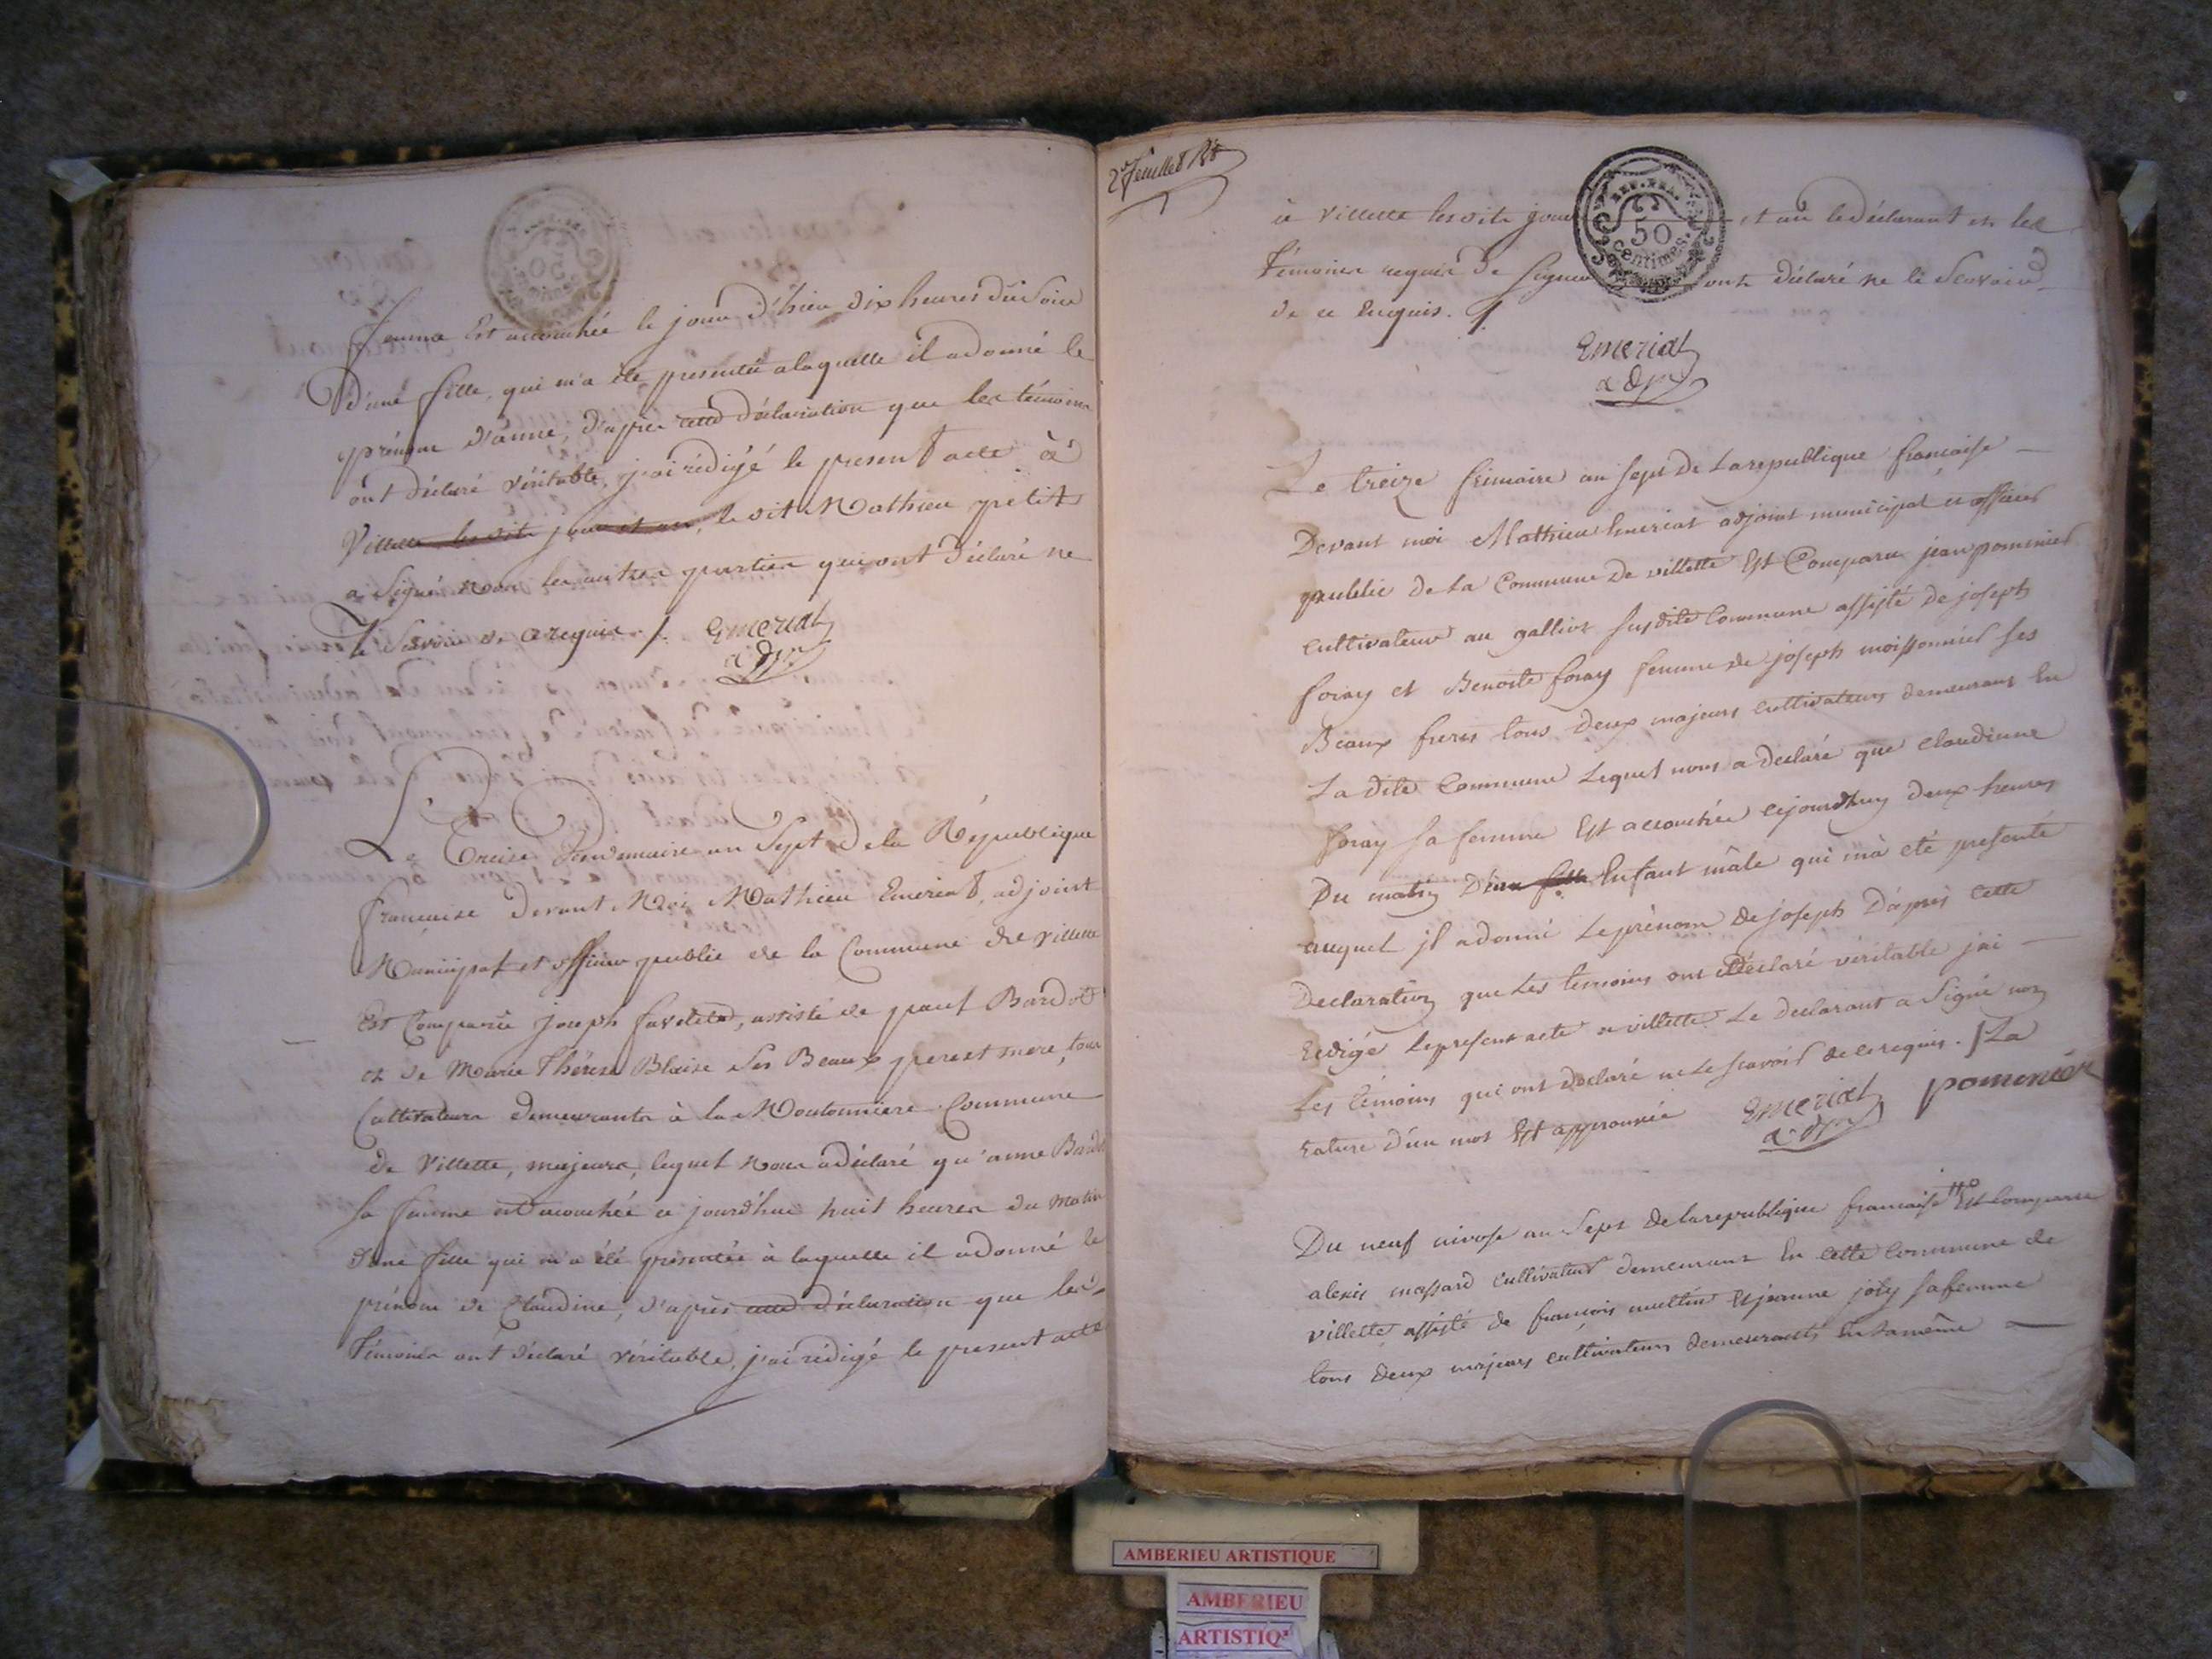 femme Est accouchée le jour d'hier dix heures du Soir
D'une fille, qui m'a été presentée alaquelle il adonné le
prénom d'anne, d'après cette déclaration que les témoins
ont déclaré véritable, j'ai rédigé le present acte à
Villette les dits jour et an, le dit Mathieu petit
a Signé non les autres parties qui ont déclaré ne
le Savoir de ce requis ./. Emeriat
adjt
Le Treize Vendemiaire an Sept de la République
francaise devant Moi Mathieu Emeriat, adjoint
Municipal et officier public de la Commune de Villette
Est Comparu Joseph favelet, assisté de paul Bardot
et de Marie Thérese Blaise Ses Beaux pere et mere, tous
Cultivateurs demeurants à la Moutonniere Commune
de Villette, majeurs, lequel nous adéclaré qu'anne Bardot
Sa femme est accouchée ce jourd'hui huit heures du Matin
d'une fille qui m'a été présentée à laquelle il adonné le
prénom de Claudine, d'après cette déclaration que les
témoins ont déclaré véritable, j'ai rédigé le present acte
2e feuillet Rt
à Villette les dits jour et an le déclarant et les
témoins requis de Signer ont déclaré ne le Scavoir
de ce Enquis. ./.
REP. FRA.
50
centimes.
Emeriat
adjt
Le treize frimaire an sept de La republique francaise
Devant moi Mathieu Emeriat adjoint municipal et officier
public de La Commune de villette Est Comparu jean pommier
cultivateur au gallior susdite Commune assisté de joseph
foray et Benoite foray femme de joseph moissonnier ses
Beaux freres tous deux majeurs cultivateurs demeurans En
La dite Commune Lequel nous a déclaré que claudinne
foray sa femme Est accouchée cejourdhuy deux heures
Du matin D'une fille Enfant mâle qui m'a eté presenté
auquel jl adonné Le prénom de joseph D'après cette
Declaration que Les temoins ont déclaré véritable jai
redigé Le present acte a villette Le declarant a Signé non
Les témoins qui ont déclaré ne Le scavoir de ce requis. / La
rature d'un mot Est approuvée Emeriat pommier
adjt
Du neuf nivose an Sept de la republique francaise Est comparu
alexis massard cultivateur demeurant En cette Commune de
villette assisté de francois multin Et jeanne joly sa femme
tous deux majeurs cultivateurs demeurants En La même
AMBERIEU ARTISTIQUE
AMBERIEU
ARTISTIQ